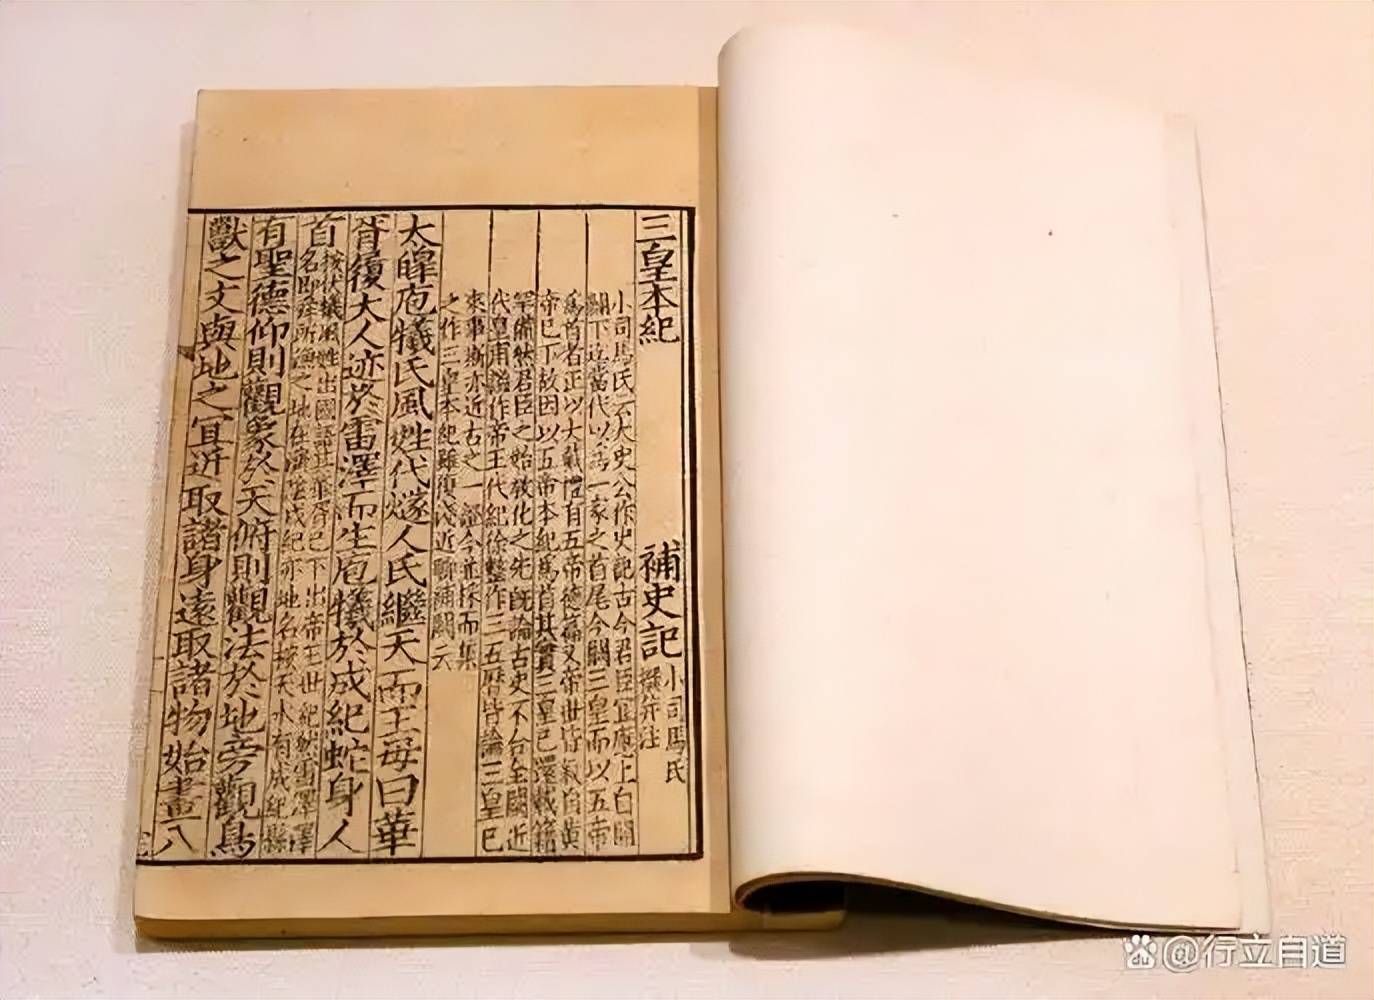 三皇本紀 補史記 小司馬氏
撰并注
小司馬氏云太史公作史記古今君臣宜應上自開
闢下迄當代以爲一家之首尾今闕三皇而以五帝
爲首者正以大戴禮有五帝德篇又帝世皆叙自黃
帝已下故因以五帝本紀爲首其實三皇已還載籍
罕備然君臣之始教化之先旣論古史不合全闕近
代皇甫謐作帝王代紀徐整作三五曆皆論三皇已
來事斯亦近古之一證今並採而集
之作三皇本紀雖復淺近聊補闕云
太皥庖犧氏風姓代燧人氏繼天而王母曰華
胥履大人迹於雷澤而生庖犧於成紀蛇身人
首 按伏犧風姓出國語其華胥已下出帝王世紀然雷澤澤
名即舜所漁之地在濟陰成紀亦地名按天水有成紀縣
有聖德仰則觀象於天俯則觀法於地旁觀鳥
獸之文與地之宜近取諸身遠取諸物始畫八
Bai du @行立自道